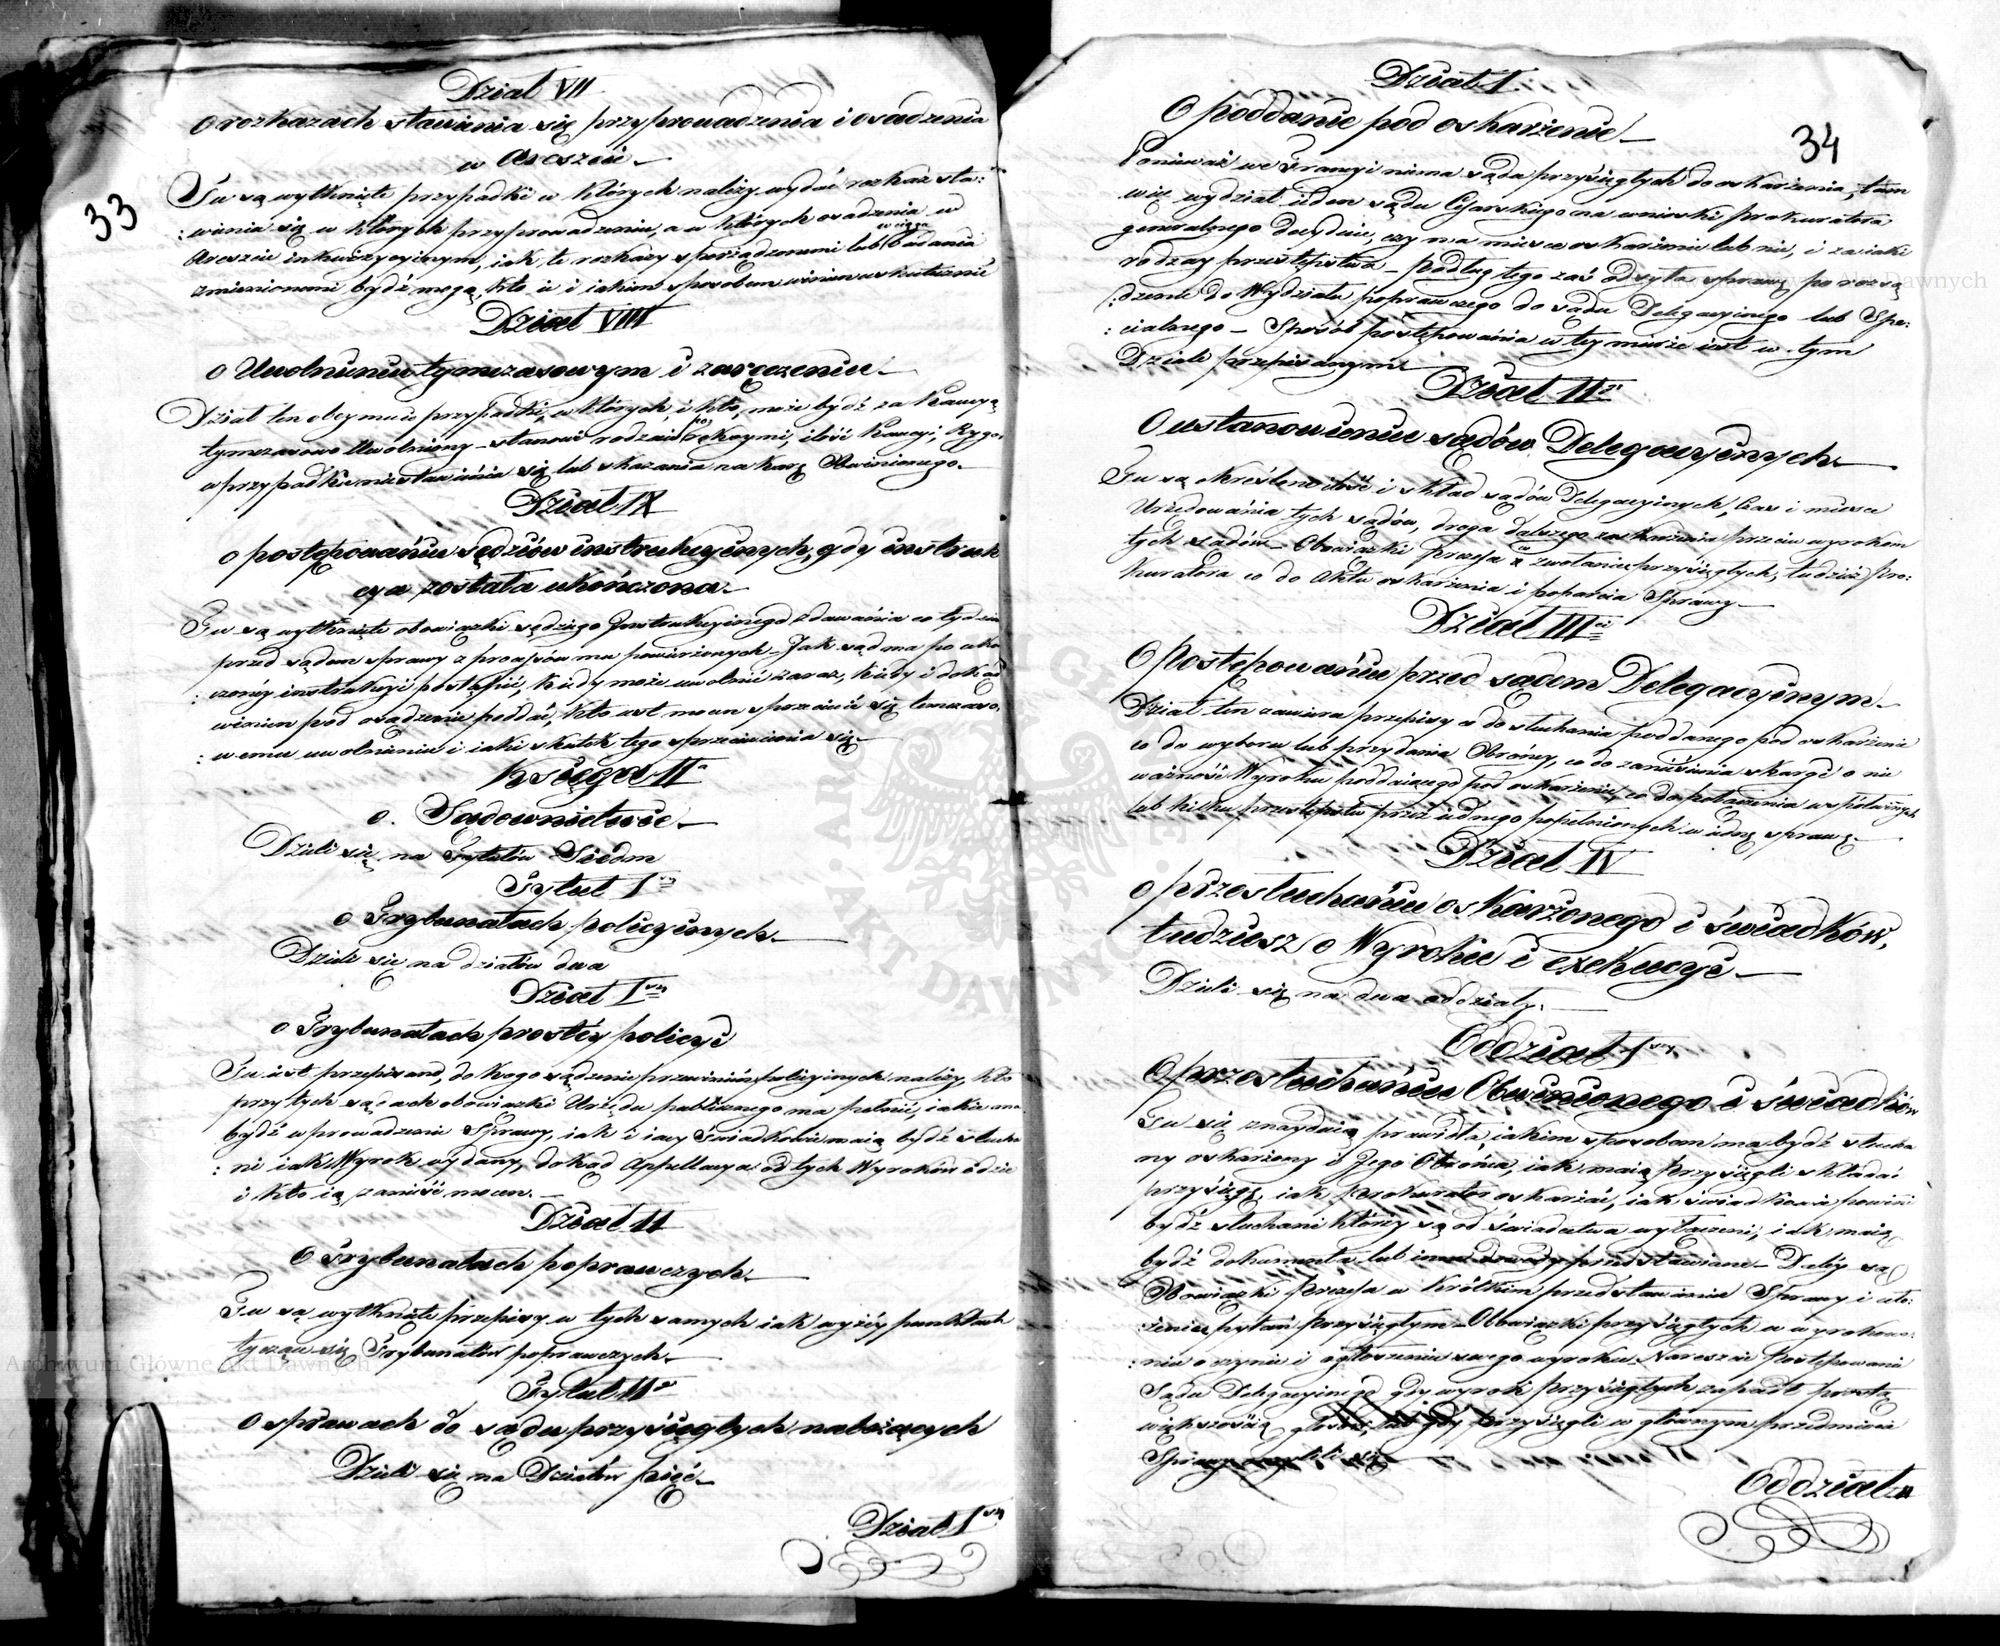 33
Dział VII
O rozkazach stawienia się przyprowadzenia i osadzenia
w Areszcie.
Tu są wytknięte przypadki w których należy wydać rozkaz sta:
:wienia się w których przyprowadzenia, a w których osadzenia w
Areszcie inkwizycyjnym, jak te rozkazy sporządzonemi lub
zmienionemi bydź mogą, kto je i jakim sposobem winien uskutecznić
Dział VIII
o Uwolnieniu tymczasowym i zaręczeniu
Dział ten obejmuje przypadki, w których, i kto, może bydź za Kaucyą
tymczasowo Uwolniony – stanowi rodzaie rękoymi, ilość Kaucyi, Rygo.
w przypadku niestawienia się lub skazania na karę Obwinionego.
Dział IX
o postępowaniu sędziów instrukcyinych, gdy instruk
cya została ukończona.
Tu są wytknięte obowiązki sędziego Instrukcyinego zdawania co tydzień
przed sądem sprawy z processów mu powierzonych – Jak sąd ma po ukoń
:czonéy instrukcyi postąpić, kiedy może uwolnić zaraz, kiedy i dokąd
winien pod osądzenie poddać, kto iest mocen sprzeciwić się tymczaso,
:wemu uwolnieniu i iaki skutek tego sprzeciwienia się.
Księga II
o. Sadownictwie.
Dzieli się na Tytułów Siedm
Tytuł I
o Trybunałach policyinych.
Dzieli się na działów dwa
Dział I
o Trybunałach prostéy policyi
Tu iest przepisano, do kogo sądzenie przewinień policyinych należy, kto
przy tych sądach obowiązki Urzędu publicznego ma pełnić, iakie ma
bydź wprowadzenie Sprawy, iak i iacy świadkowie maią bydź słucha
:ni iak Wyrok wydany, dokąd Apellacya od tych Wyroków idzie
i kto ią zanieść mocen.
Dział II
O Trybunałach poprawczych.
Tu są wytknięte przepisy w tych samych iak wyżéy punktach
tyczące się Trybunałów poprawczych.
Tytuł II
O sprawach do sądu przysięgłych należących
Dzieli się na Działów pięć.
Dział I
34
Dział I.
O poddanie pod oskarżenie
Ponieważ we Francyi niema sąda przysięgłych do oskarżenia, tam
więc wydział ieden sądu Cesarskiego na wnioski prokuratora
generalnego decyduie, czy ma mieysce oskarżenie lub nie, i za iaki
rodzay przestępstwa – podług tego zaś Odsyła sprawę po rozsą
:dzenie do Wydziału poprawczego do sądu Delegacyinego lub Spe:
:cialnego – Sposób postępowania w tey mierze iest w tym
Dziale przepisanym.
Dział II
O ustanowieniu sądów Delegacyinych.
Tu są określone ilość i skład sądów Delegacyinych, Czas i mieysce
Urzędowania tych sądów, droga dalszego zaskarżenia przeciw wyrokom
tych sądów – Obowiązki Prezesa w zwołaniu przysięgłych, tudzież Pro:
kuratora co do Aktu oskarżenia i poparcia Sprawy
Dział III
O postępowaniu przed sądem Delegacyinym.
Dział ten zawiera przepisy co do słuchania poddanego pod oskarżenie
co do wyboru lub przydania Obrońcy, co do zaniesienia skargi o nie
ważność Wyroku poddaiącego pod oskarżenie, co do połączenia wspólwinnych
lub kilku przestępstw przez iednego popełnionych w iedną sprawę.
Dział IV
o przesłuchaniu oskarżonego i świadków,
tudziesz o Wyroku i exekucyi
Dzieli się na dwa oddziały.
Oddział I
O przesłuchaniu Obwinionego i świadków
Tu się znayduią prawidła, iakim sposobem ma bydź słucha
ny oskarżony i Jego Obrońca, iak maią przysięgli składać
przysięgę, iak prokurator oskarżać, iak świadkowie powini
bydź słuchani którzy są od świadectwa wyłączeni, iak maią
bydź dokumenta lub inne dowody przedstawiane – Daléy są
Obowiązki Prezesa w krótkim przedstawieniu Sprawy i uło:
żeniu pytań przysięgłym – Obowiązki przysięgłych w wyrokowa:
:niu o czynie i ogłoszeniu swego wyroku. Nareszcie Postępowanie
Sądu Delegacyinego gdy wyrok przysięgłych zapadł prostą
większością głosów, lub gdy przysięgli w głównym przedmiocie
Sprawy
Oddział II